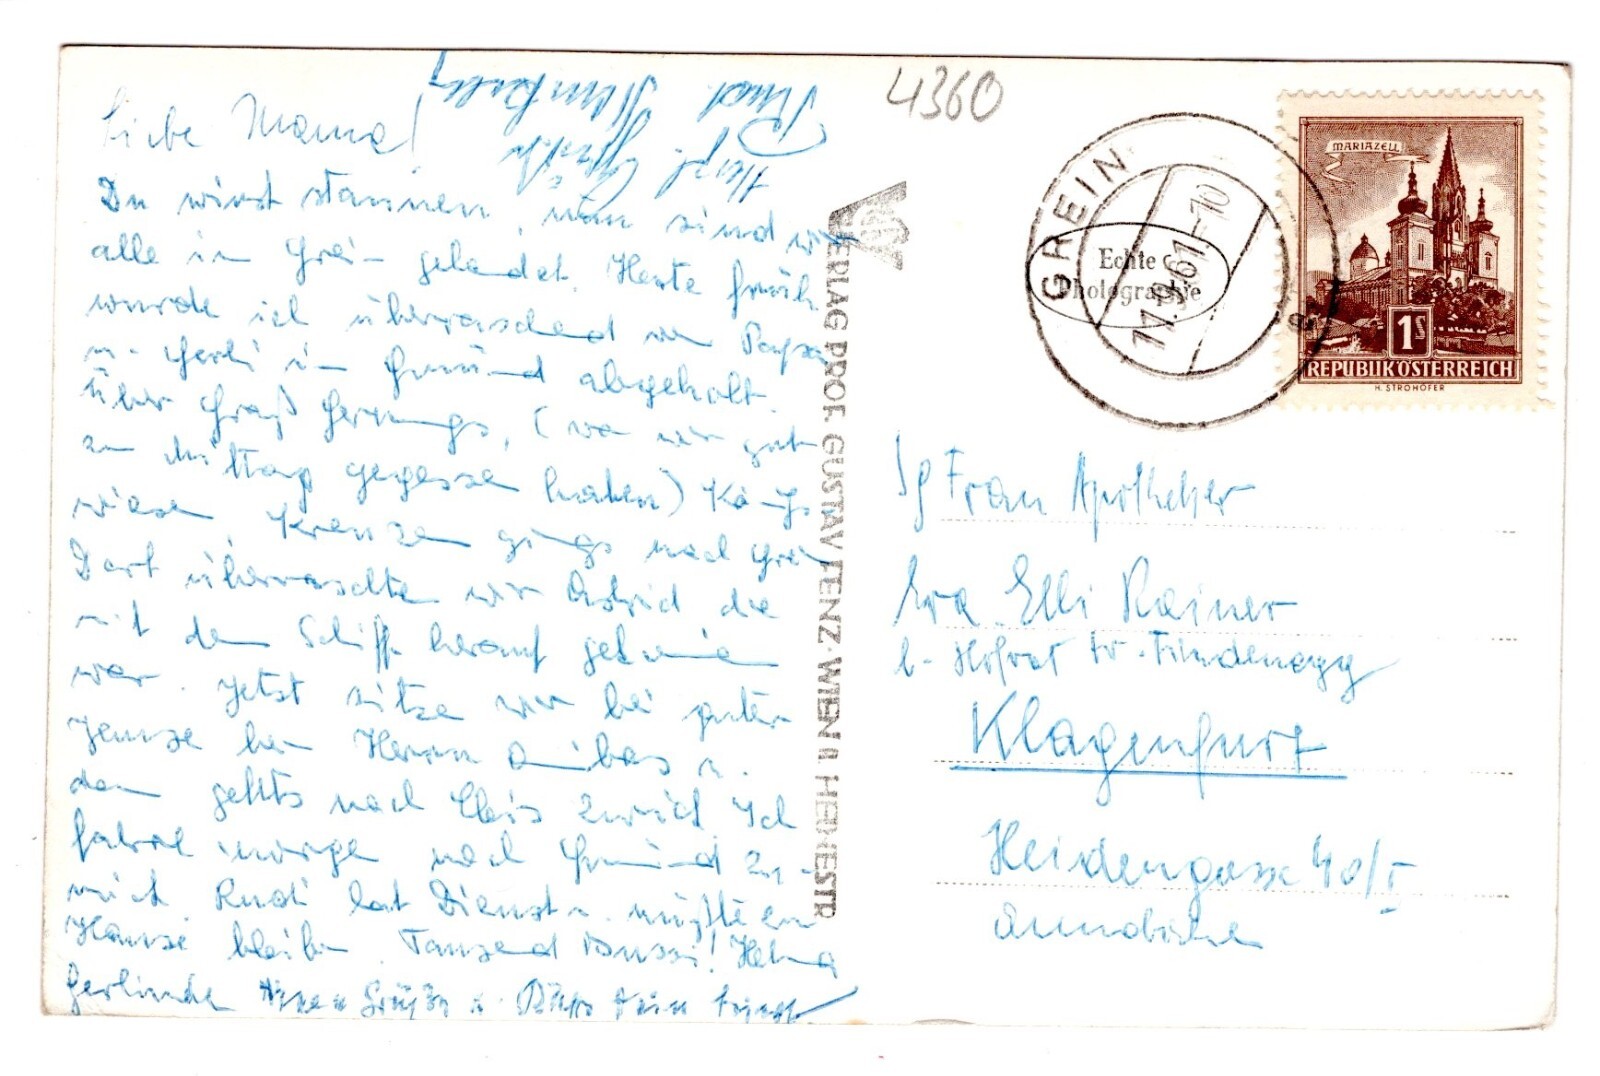 Liebe Mama!
Du wirst staunen, nun sind wir
alle in Grein gelandet. Heute früh
wurde ich überraschend von Papa
u. Gerli in Gmünd abgeholt.
Über Groß Gerungs, (wo wir gut
zu Mittag gegessen haben) Königs
wiesen, Kreuzen gings nach Grein
Dort überraschten wir Astrid die
mit dem Schiff herauf gekommen
war. Jetzt sitzen wir bei guter
Jause bei Herrn u.
dann gehts nach zurück. Ich
fahre morgen nach Gmünd zu-
rück. Rudi hat Dienst u. mußte zu
Hause bleiben. Tausend Bussi! Helma
Gerlinde Grüße u. Dein
Herzl. Grüße
Rud.
VERLAG PROF. GUSTAV FENZ · WIEN II. HEINESTR
4360
GREIN
11.9.61-10
Echte
Photographie
MARIAZELL
1S
REPUBLIK ÖSTERREICH
H. STROHOFER
Frau Apotheker
Elli Rainer
b. Hofrat Dr.
Klagenfurt
Heidengasse 40/I